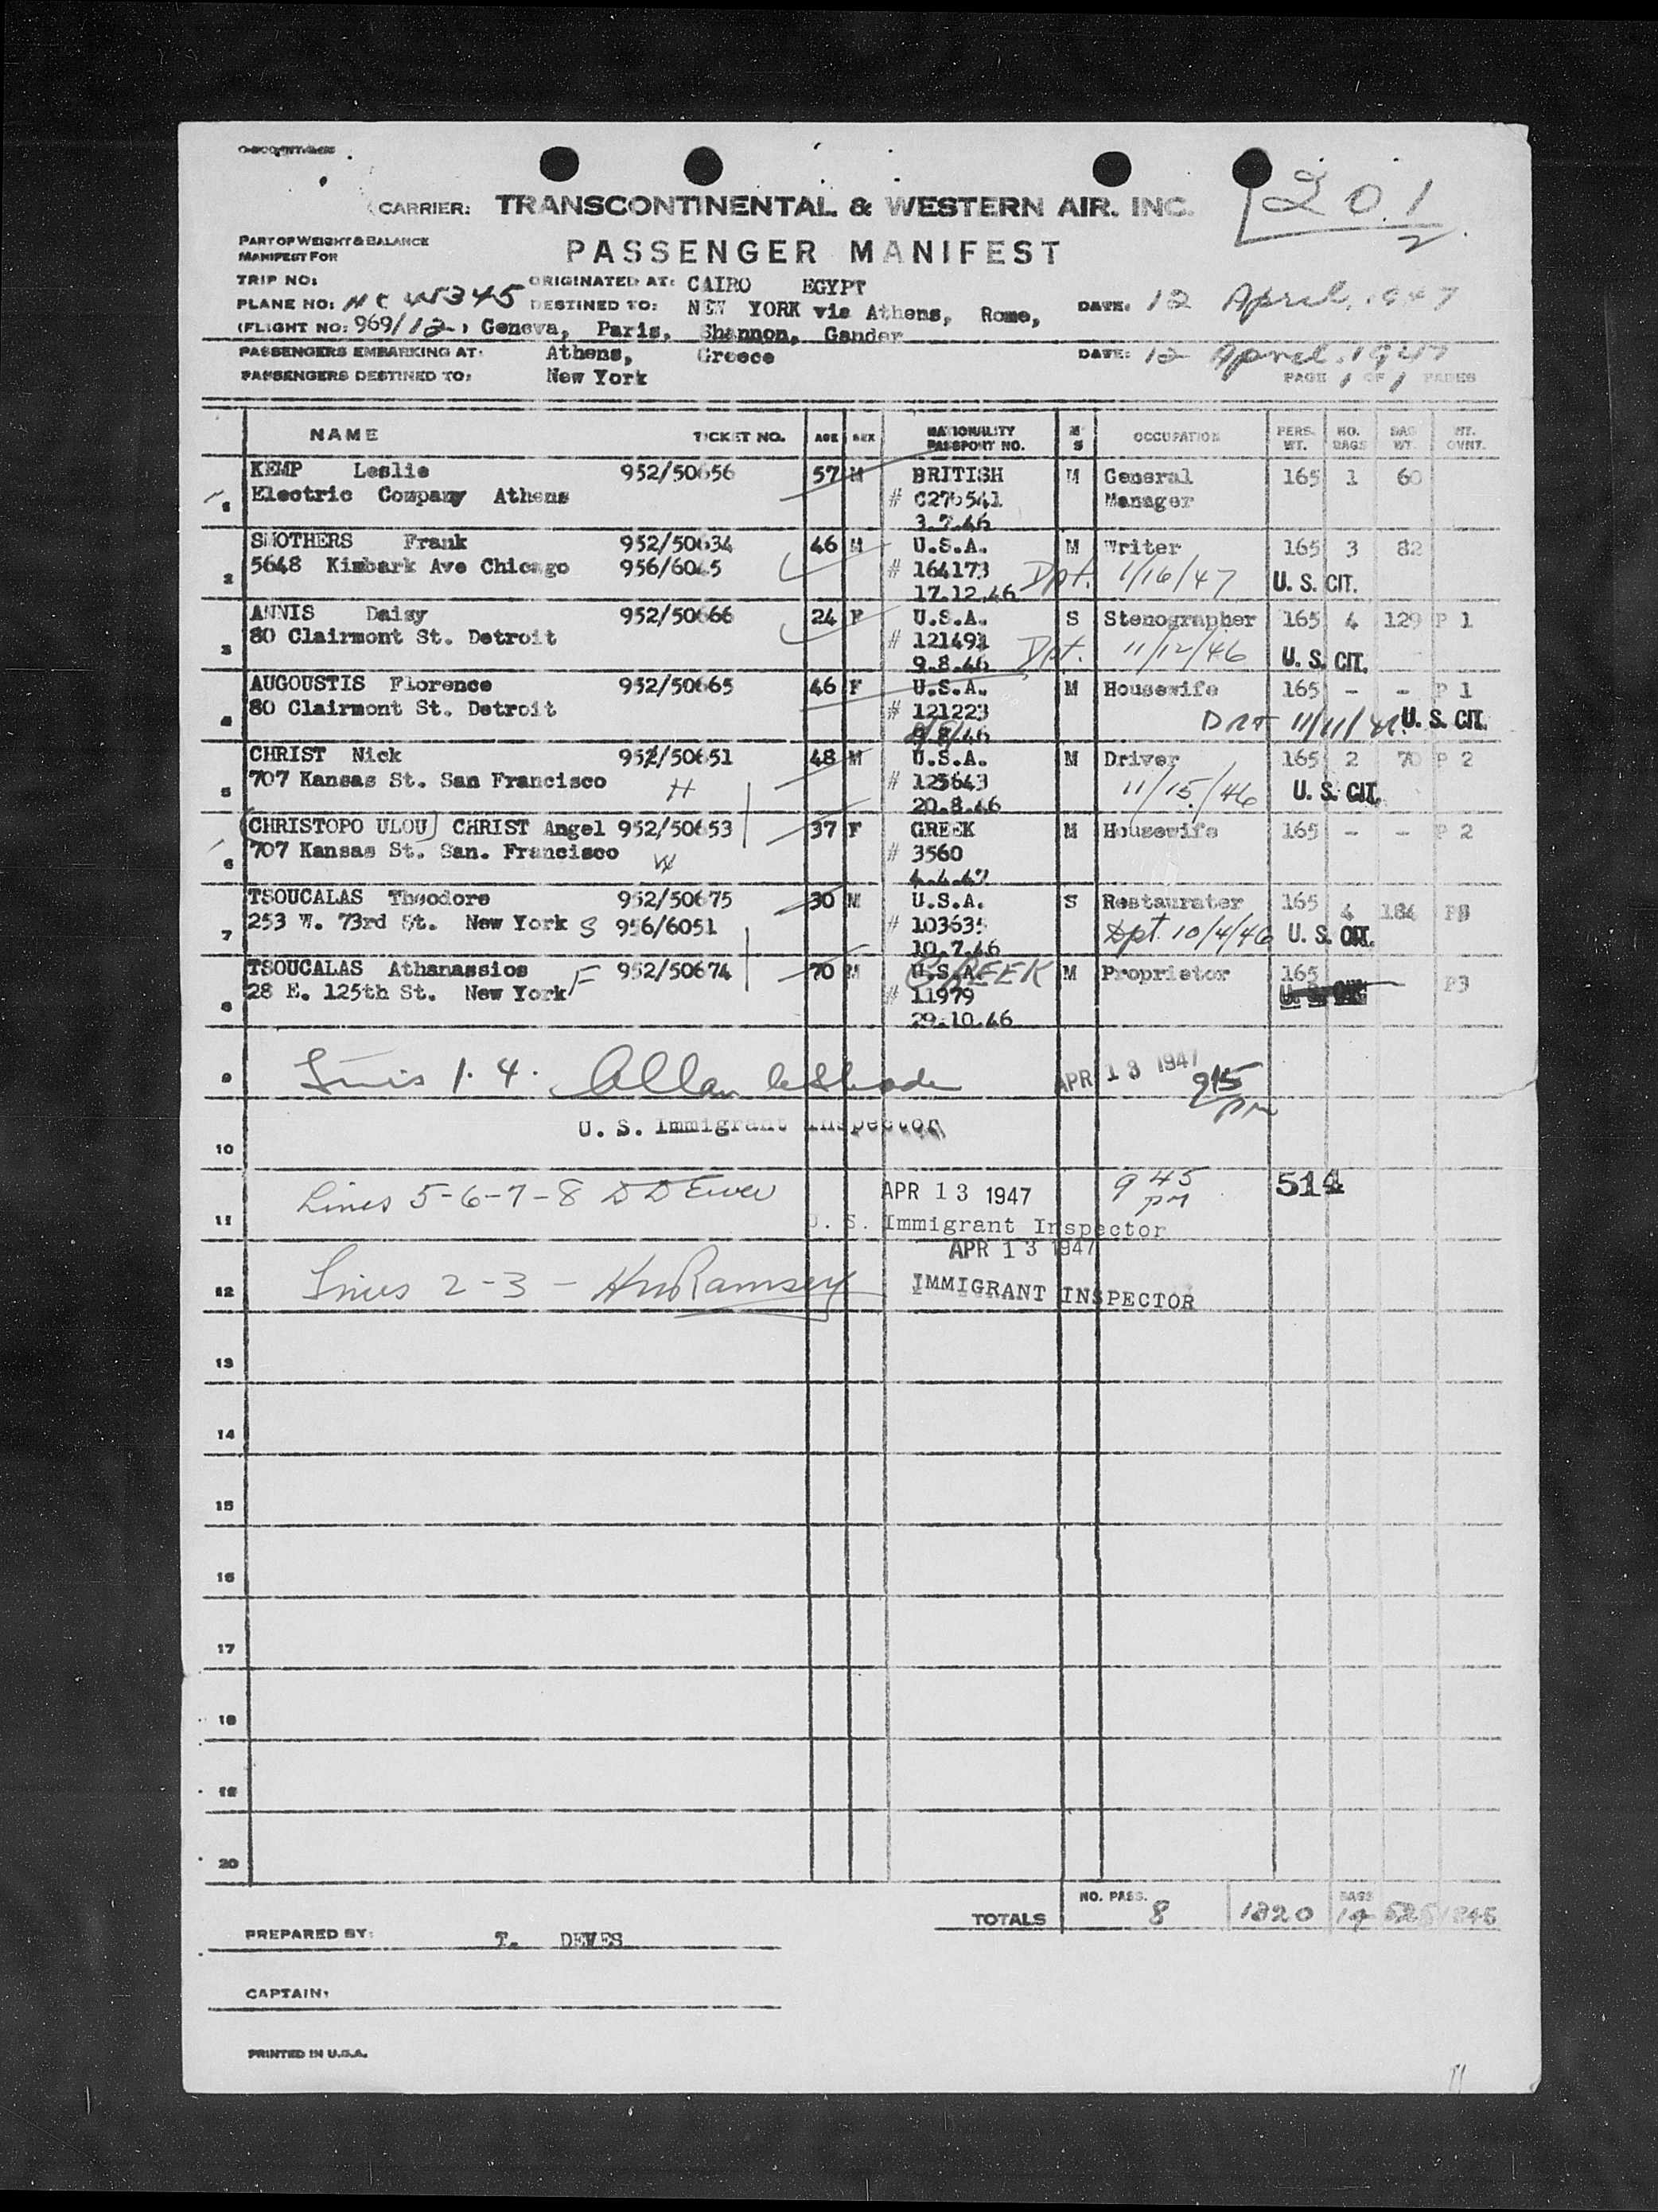 CARRIER: TRANSCONTINENTAL & WESTERN AIR. INC.
201
2
PART OF WEIGHT & BALANCE
MANIFEST FOR
PASSENGER MANIFEST
TRIP NO: ORIGINATED AT: CAIRO EGYPT
PLANE NO: DESTINED TO: NEW YORK via Athens, Rome, DATE: 12 April, 1947
(FLIGHT NO: 969/12) Geneva, Paris, Shannon, Gander
PASSENGERS EMBARKING AT: Athens, Greece DATE: 12 April, 1947
PASSENGERS DESTINED TO: New York PAGE 1 OF 1 PAGES
NAME TICKET NO. AGE SEX NATIONALITY PASSPORT NO. M S OCCUPATION PERS. WT. NO. BAGS BAG WT. WT. OVNT.
KEMP Leslie 952/50656 57 M BRITISH M General 165 1 60
1 Electric Company Athens # C276541 Manager
3.7.46
SMOTHERS Frank 952/50634 46 M U.S.A. M Writer 165 3 82
2 5648 Kimbark Ave Chicago 956/6045 # 164173 Dpt. 1/16/47 U. S. CIT.
17.12.46
ANNIS Daisy 952/50666 24 F U.S.A. S Stenographer 165 4 129 P 1
3 80 Clairmont St. Detroit # 121491 Dpt. 11/12/46 U. S. CIT.
9.8.46
AUGOUSTIS Florence 952/50665 46 F U.S.A. M Housewife 165 - - P 1
4 80 Clairmont St. Detroit # 121223 DPT 11/11/46 U. S. CIT.
8.8.46
CHRIST Nick 952/50651 48 M U.S.A. M Driver 165 2 70 P 2
5 707 Kansas St. San Francisco H # 125643 11/15/46 U. S. CIT.
20.8.46
(CHRISTOPO ULOU) CHRIST Angel 952/50653 37 F GREEK M Housewife 165 - - P 2
6 707 Kansas St. San. Francisco W # 3560
4.4.47
TSOUCALAS Theodore 952/50675 30 M U.S.A. S Restaurater 165 4 184 P3
7 253 W. 73rd St. New York S 956/6051 # 103635 Dpt. 10/4/46 U. S. CIT.
10.7.46
TSOUCALAS Athanassios 952/50674 70 M U.S.A. GREEK M Proprietor 165 P3
8 28 E. 125th St. New York F # 11979 U. S. CIT.
29.10.46
9 Lines 1. 4. APR 13 1947 915 pm
U. S. Immigrant Inspector
10
Lines 5-6-7-8 APR 13 1947 9 45 pm 514
11 U. S. Immigrant Inspector
APR 13 1947
12 Lines 2-3 - Ramsey IMMIGRANT INSPECTOR
13
14
15
16
17
18
19
20
TOTALS NO. PASS. 8 1320 BAGS 14 525 1845
PREPARED BY: T. DEVES
CAPTAIN:
PRINTED IN U.S.A.
11